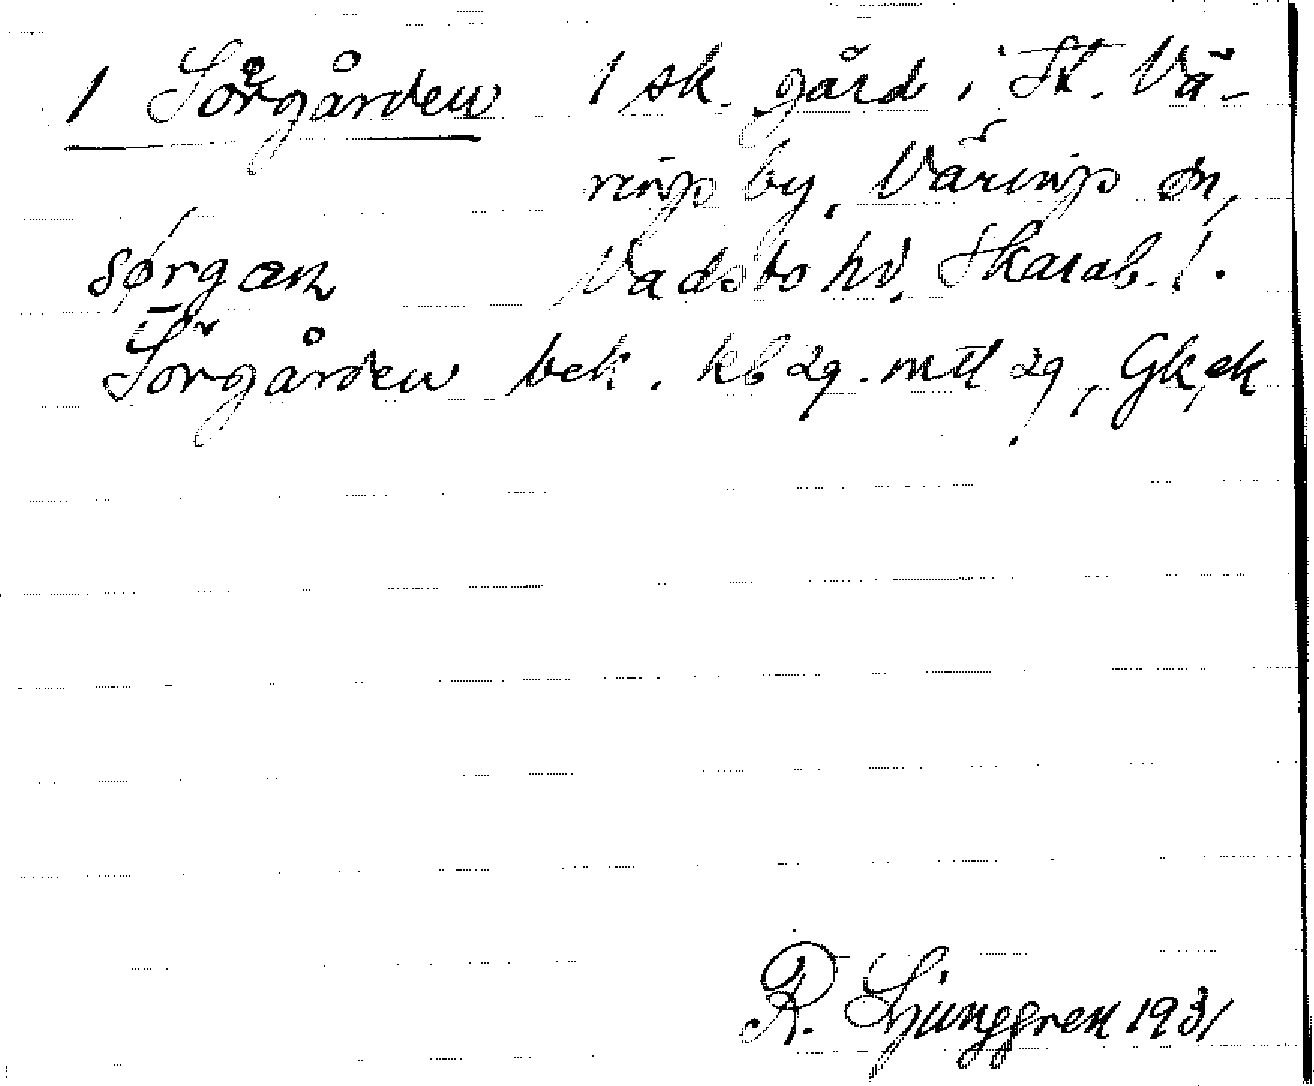 1 Sörgården 1 sk. gård i St. Vä-
rings by, Värings sn,
sørgæn Vadsbo hd, Skarab. l.
Sörgården bek. kb 29. mtl 29, Gk, ek
R. Ljunggren 1931